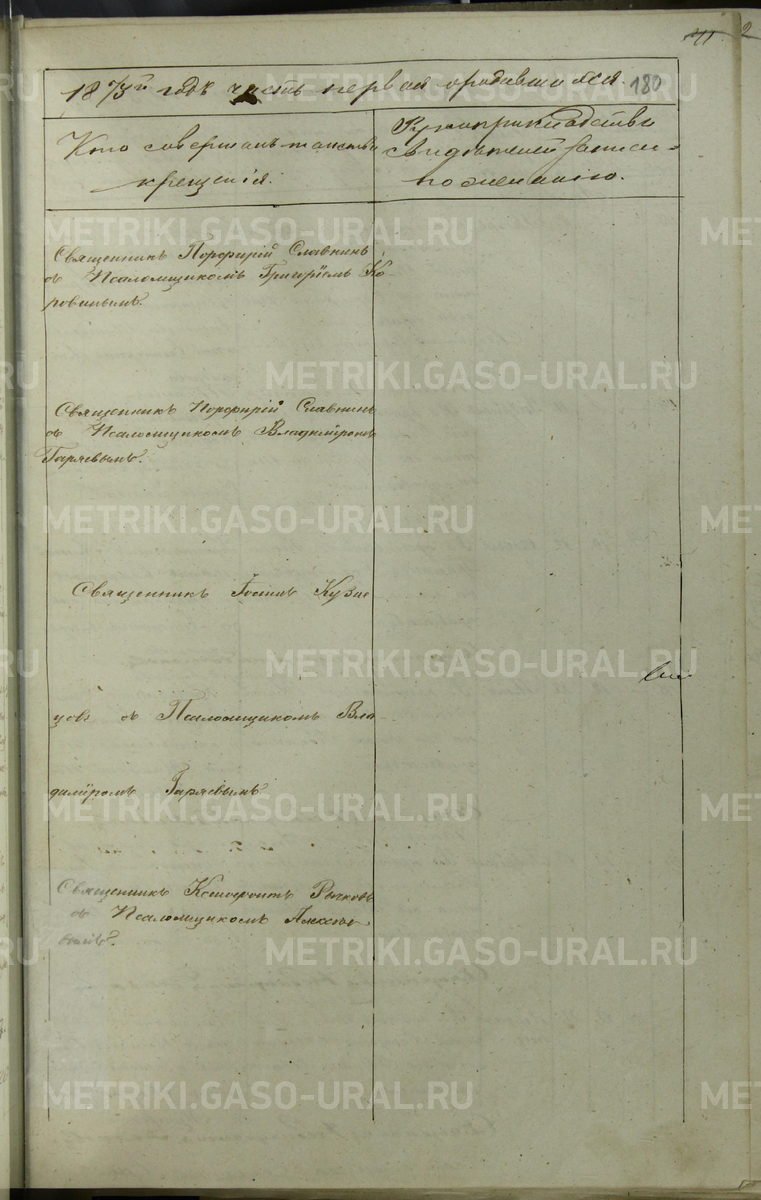 180
18 75 й годъ часть первая о родившихся.
Кто совершалъ таинство
крещенія.
Рукоприкладство
свидѣтелей записи
по желанію.
Священникъ Порфирій Славнинъ
съ Псаломщикомъ Григоріемъ Ко-
ровинымъ.
Священникъ Порфирій Славнинъ
съ Псаломщикомъ Владиміромъ
Гаряевымъ.
Священникъ Іоаннъ Кузне
цовъ съ Псаломщикомъ Вла
диміромъ Гаряевымъ
Священникъ Ксенофонтъ Рычковъ
съ Псаломщикомъ
METRIKI.GASO-URAL.RU